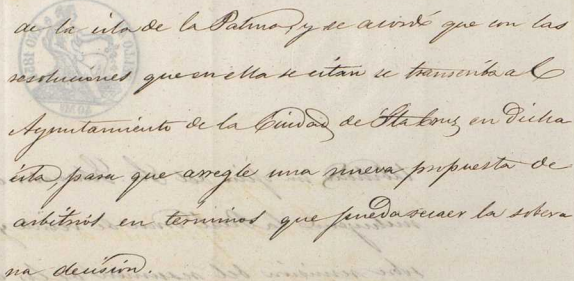 de la isla de la Palma, y se acordó que con las
resoluciones que en ella se citan se transcriba al
Ayuntamiento de la Ciudad de Sta Cruz en dicha
isla, para que arregle una nueva propuesta de
arbitrios en terminos que pueda recaer la sobera
na decision.